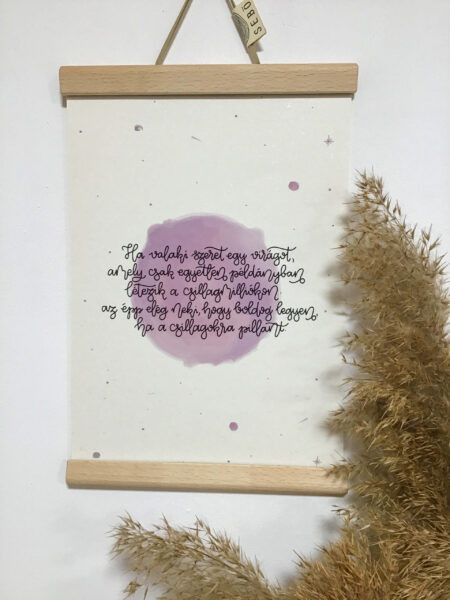 SEBŐ
Ha valaki szeret egy virágot,
amely csak egyetlen példányban
létezik a csillagmilliókon,
az épp elég neki, hogy boldog legyen,
ha a csillagokra pillant.